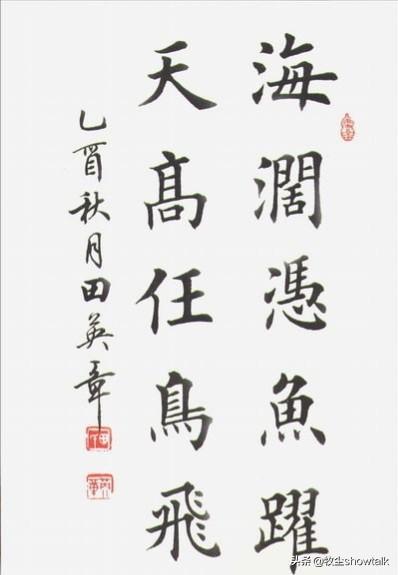 海濶憑魚躍
天髙任鳥飛
乙酉秋月田英章
头条 @牧尘showtalk